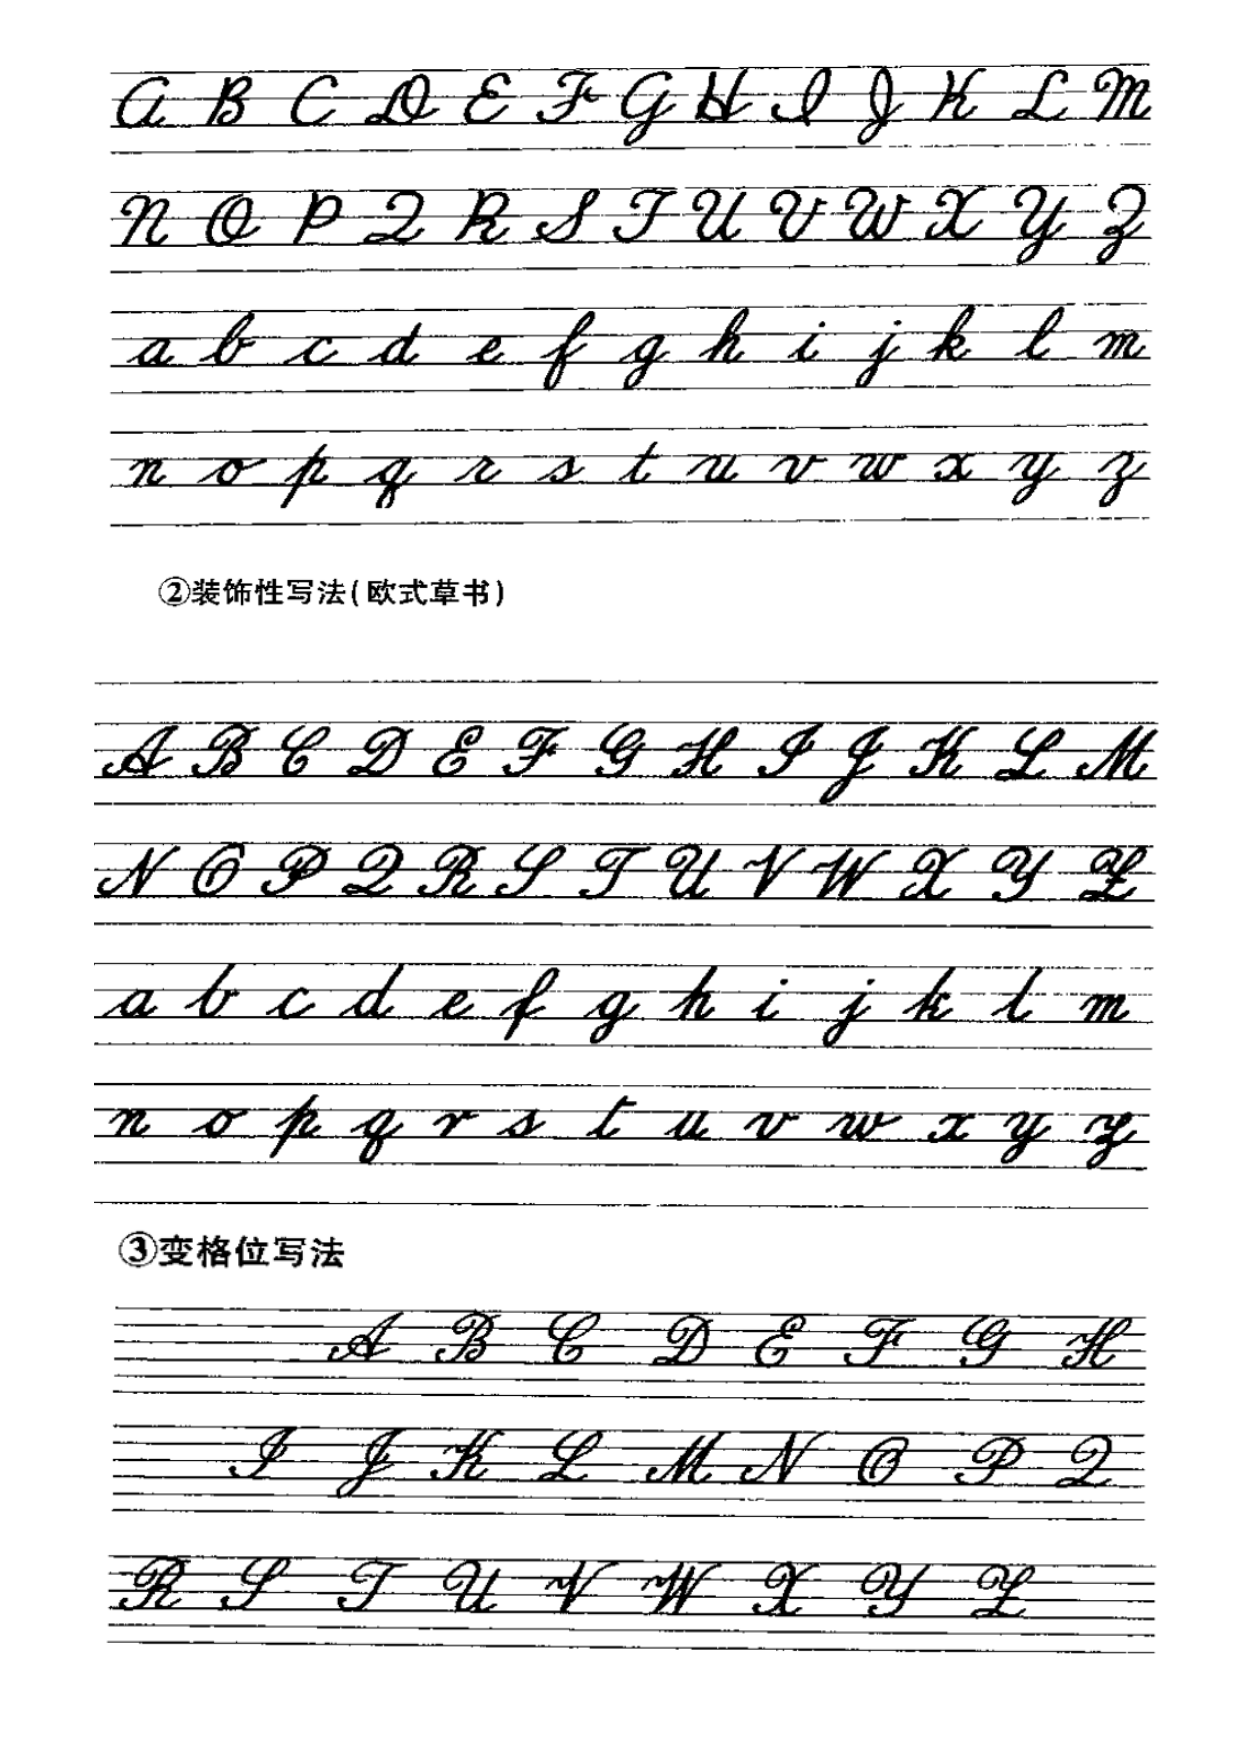 A B C D E F G H I J K L M
N O P Q R S T U V W X Y Z
a b c d e f g h i j k l m
n o p q r s t u v w x y z
②装饰性写法(欧式草书)
A B C D E F G H I J K L M
N O P Q R S T U V W X Y Z
a b c d e f g h i j k l m
n o p q r s t u v w x y z
③变格位写法
A B C D E F G H
I J K L M N O P Q
R S T U V W X Y Z